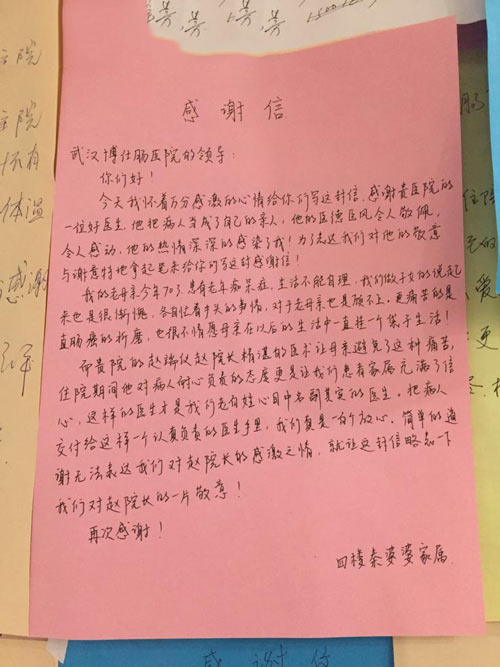 感谢信
武汉博仕肠医院的领导：
你们好！
今天我怀着万分感激的心情给你们写这封信，感谢贵医院的
一位好医生，他把病人当成了自己的亲人，他的医德医风令人敬佩，
令人感动，他的热情深深的感染了我！为了表达我们对他的敬意
与谢意特地拿起笔来给你们写这封感谢信！
我的老母亲今年70了患有老年痴呆症，生活不能自理，我们做子女的说起
来也是很惭愧，各自忙着手头的事情，对于老母亲也是顾不上，更痛苦的是
直肠癌的折磨，也很不情愿母亲在以后的生活中一直挂一个袋子生活！
而贵院的赵端仪赵院长精湛的医术让母亲避免了这种痛苦，
住院期间他对病人耐心负责的态度更是让我们患者家属充满了信
心，这样的医生才是我们老百姓心目中名副其实的医生。把病人
交付给这样一个认真负责的医生手里，我们真是一百个放心，简单的道
谢无法表达我们对赵院长的感激之情，就让这封信略表一下
我们对赵院长的一片敬意！
再次感谢！
四楼秦婆婆家属
住院
住院
怀有
体温
感谢
感谢信